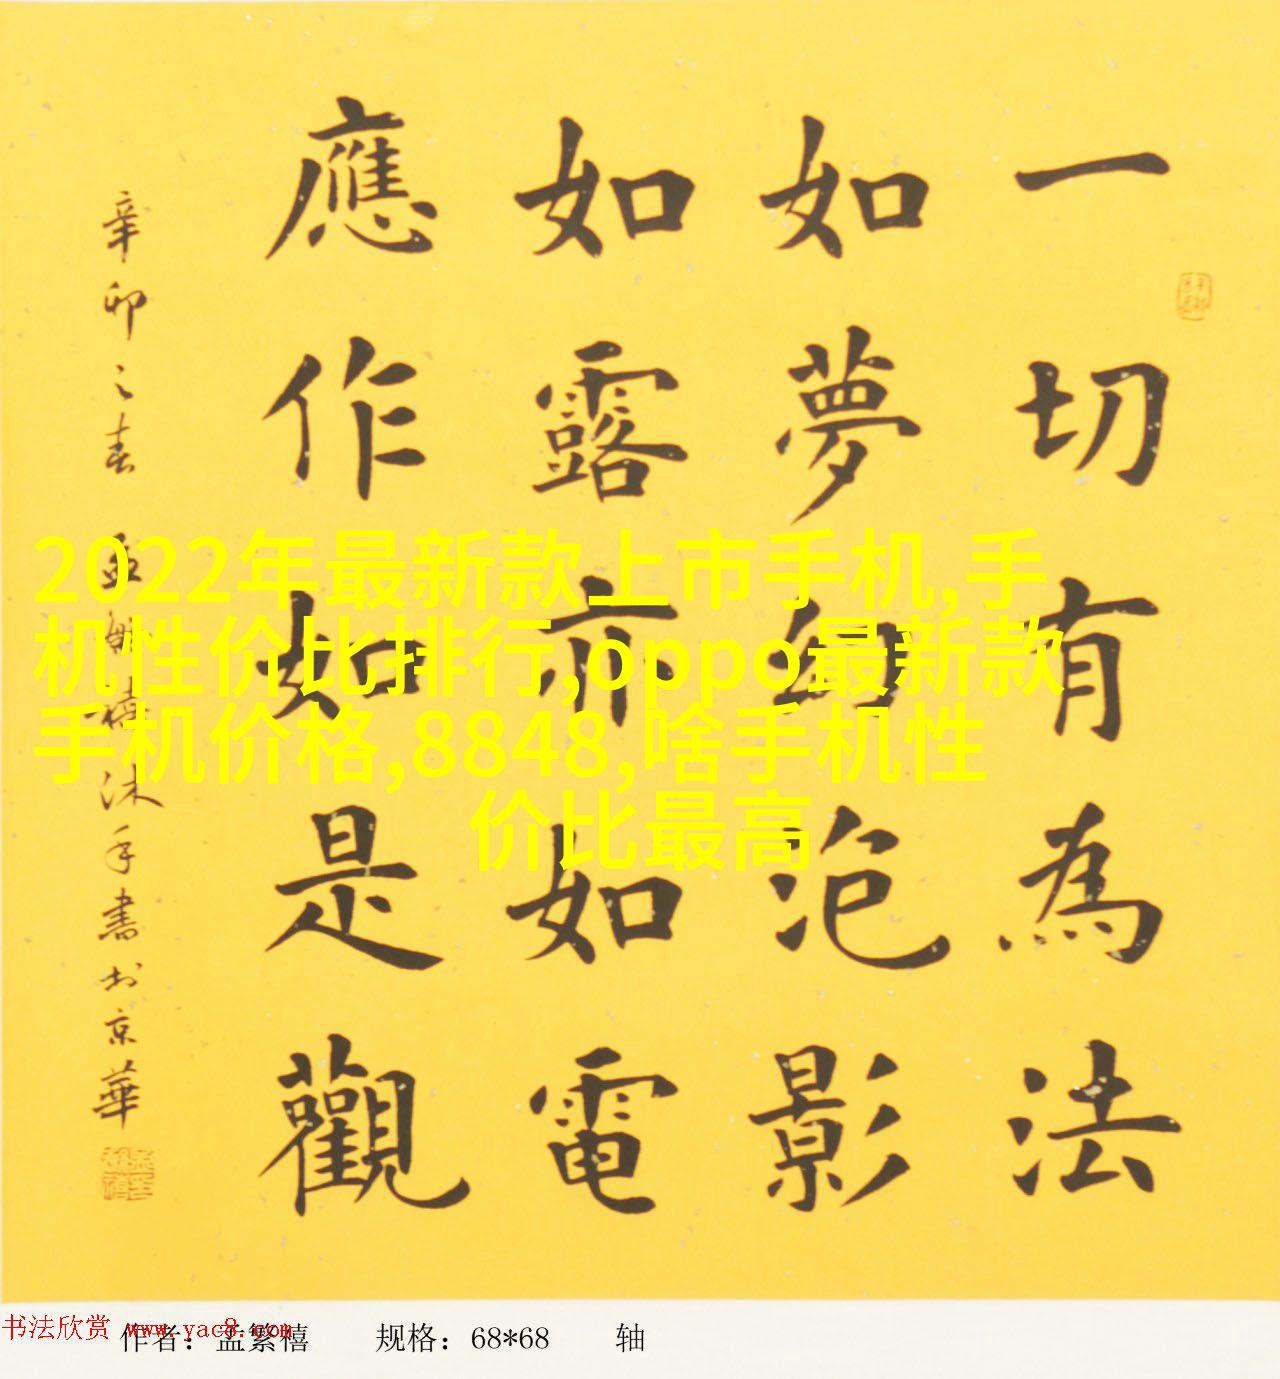 一切有為法
如夢幻泡影
如露亦如電
應作如是觀
辛卯之春 孟繁禧沐手書於京華
2022年最新款上市手机,手
机性价比排行,oppo最新款
手机价格,8848,啥手机性
价比最高
书法欣赏 www.yac8.com
作者：孟繁禧 规格：68*68 轴